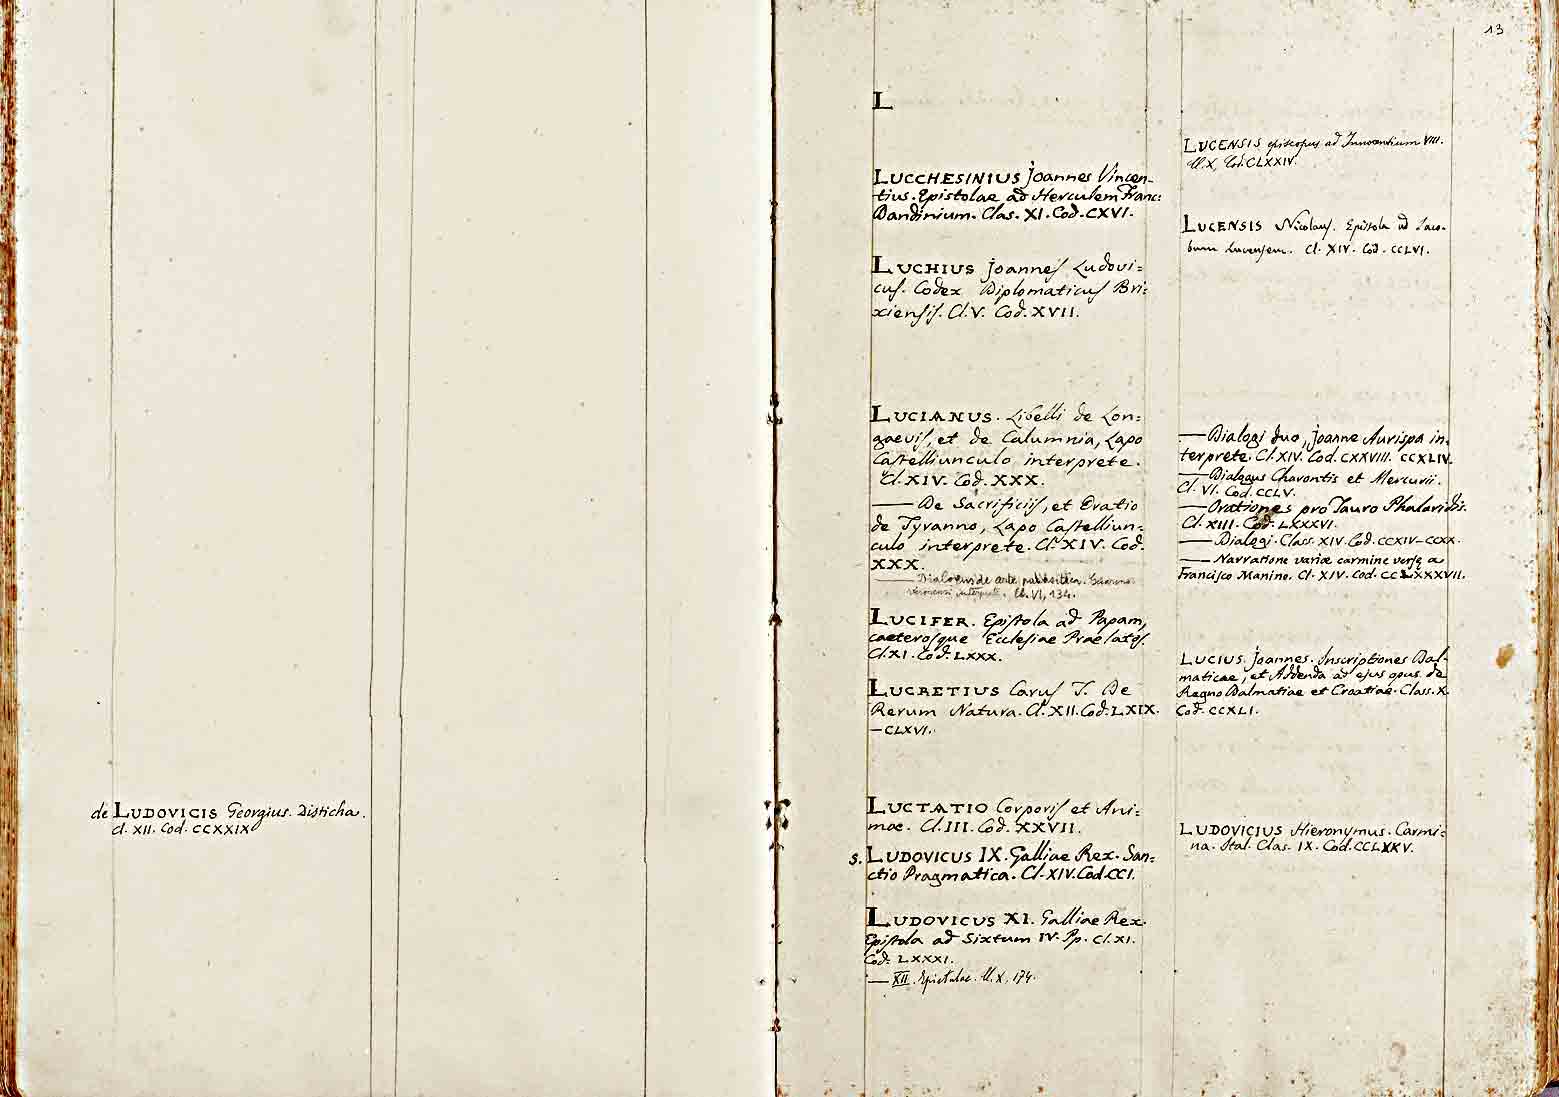 de LUDOVICIS Georgius. Disticha.
Cl. XII. Cod. CCXXIX
13
L
LUCCHESINIUS Joannes Vincen-
tius. Epistolae ad Herculem Franc:
Dandinium. Clas. XI. Cod. CXVI.
LUCHIUS Joannes Ludovi=
cus. Codex Diplomaticus Bri=
xiensis. Cl. V. Cod. XVII.
LUCIANUS. Libelli de Lon=
gaevis, et de Calumnia, Lapo
Castelliunculo interprete.
Cl. XIV. Cod. XXX.
— De Sacrificiis, et Oratio
de Tyranno, Lapo Castelliun=
culo interprete. Cl. XIV. Cod.
XXX.
— Dialogus de arte parasitica. Guarino
Veronensi interprete. Cl. VI, 134.
LUCIFER. Epistola ad Papam,
caeterosque Ecclesiae Praelatos.
Cl. XI. Cod. LXXX.
LUCRETIUS Carus T. De
Rerum Natura. Cl. XII. Cod. LXIX.
— CLXVI.
LUCTATIO Corporis et Ani=
mae. Cl. III. Cod. XXVII.
S. LUDOVICUS IX. Galliae Rex. San=
ctio Pragmatica. Cl. XIV. Cod. CCI.
LUDOVICUS XI. Galliae Rex.
Epistola ad Sixtum IV. Pp. Cl. XI.
Cod. LXXXI.
— XII. Epistolae. Cl. X. 174.
LUCENSIS episcopus ad Innocentium VIII.
Cl. X, Cod. CLXXIV.
LUCENSIS Nicolaus. Epistola ad Iaco-
bum Lucensem. Cl. XIV. Cod. CCLVI.
— Dialogi duo, Joanne Aurispa in-
terprete. Cl. XIV. Cod. CXXVIII. CCXLIV.
— Dialogus Charontis et Mercurii.
Cl. VI. Cod. CCLV.
— Orationes pro Tauro Phalaridis.
Cl. XIII. Cod. LXXXVI.
— Dialogi. Class. XIV. Cod. CCXIV-CCXX.
— Narratione variae carmine versę a
Francisco Manino. Cl. XIV. Cod. CCLXXXVII.
LUCIUS Joannes. Inscriptiones Dal-
maticae, et Addenda ad ejus opus de
Regno Dalmatiae et Croatiae. Class. X.
Cod. CCXLI.
LUDOVICIUS Hieronymus. Carmi=
na. Ital. Clas. IX. Cod. CCLXXV.